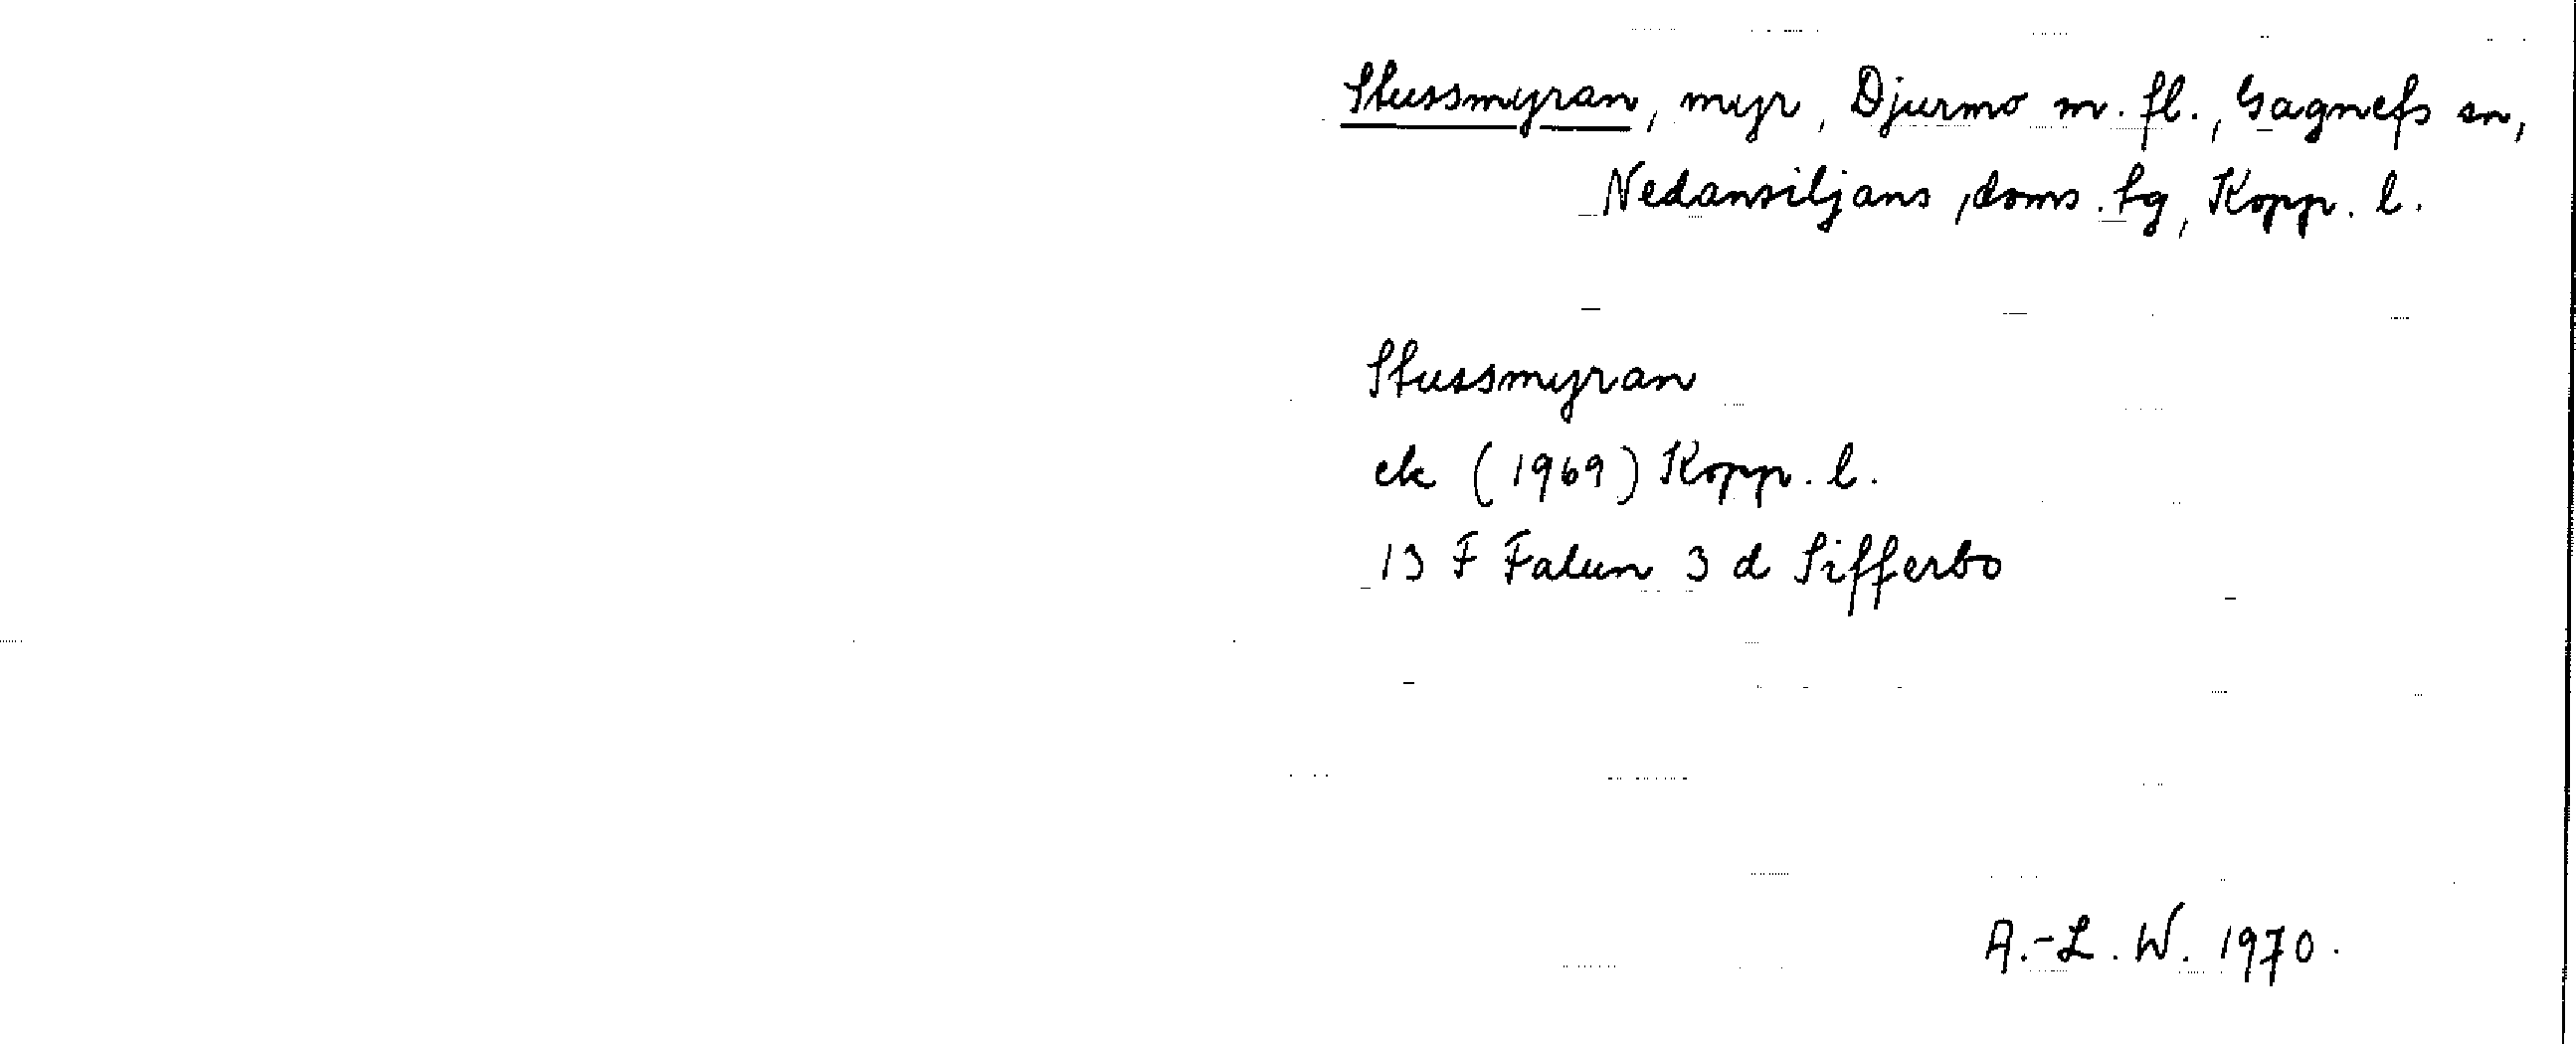 Stussmyran, myr, Djurmo m. fl., Gagnefs sn,
Nedansiljans doms. tg, Kopp. l.
Stussmyran
ek (1969) Kopp. l.
13 F Falun 3 d Sifferbo
A.-L. W. 1970.